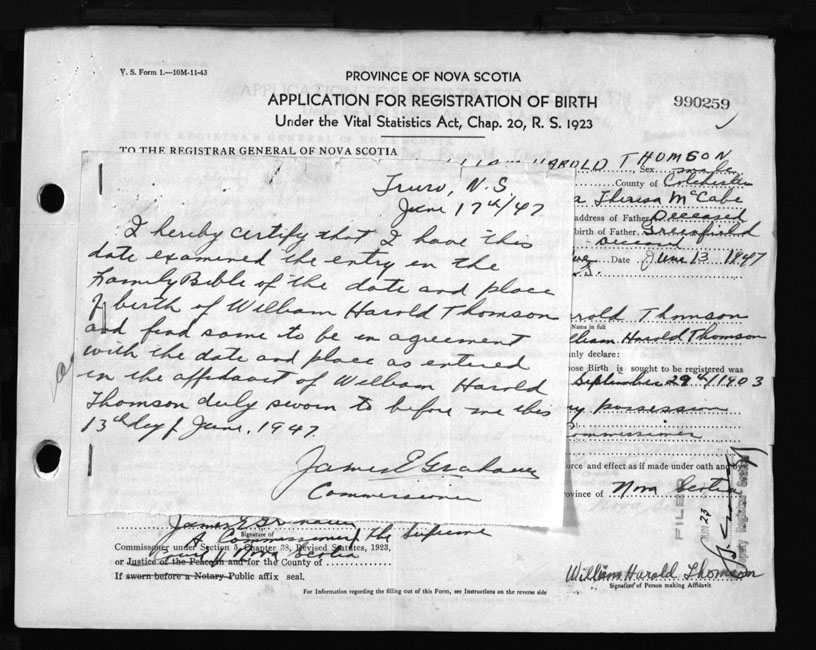 V. S. Form 1.—10M-11-43
PROVINCE OF NOVA SCOTIA
APPLICATION FOR REGISTRATION OF BIRTH
Under the Vital Statistics Act, Chap. 20, R. S. 1923
990259
TO THE REGISTRAR GENERAL OF NOVA SCOTIA
HAROLD THOMSON
Sex male
County of Colchester
Theresa McCabe
address of Father Deceased
birth of Father Greenfield
Deceased
Date June 13 1947
Truro, N.S
June 17th/47
I hereby certify that I have this
date examined the entry in the
Family Bible of the date and place
of birth of William Harold Thomson
and find same to be in agreement
with the date and place as entered
in the affidavit of William Harold
Thomson duly sworn to before me this
13th day of June, 1947
James E Graham
Commissioner
Harold Thomson
Name in full
William Harold Thomson
nly declare:
ose Birth is sought to be registered was
September 29th/1903
my possession
Commissioner
orce and effect as if made under oath and by
rovince of Nova Scotia
FILED
23
James E Graham
Signature of
A Commissioner of the Supreme
Commissioner under Section 5, Chapter 38, Revised Statutes, 1923,
Court of Nova Scotia
or Justice of the Peace in and for the County of
If sworn before a Notary Public affix seal.
William Harold Thomson
Signature of Person making Affidavit
For Information regarding the filling out of this Form, see Instructions on the reverse side